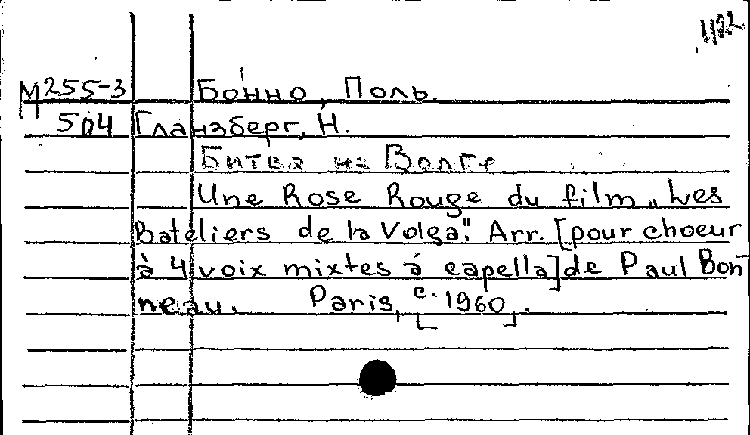 1122
М255-3 Бонно, Поль.
504 Гланзберг, Н.
Битва на Волге
Une Rose Rouge du film „Les
Bateliers de la Volga". Arr. [pour choeur
à 4 voix mixtes á capella] de Paul Bon
neau. Paris, [c. 1960].